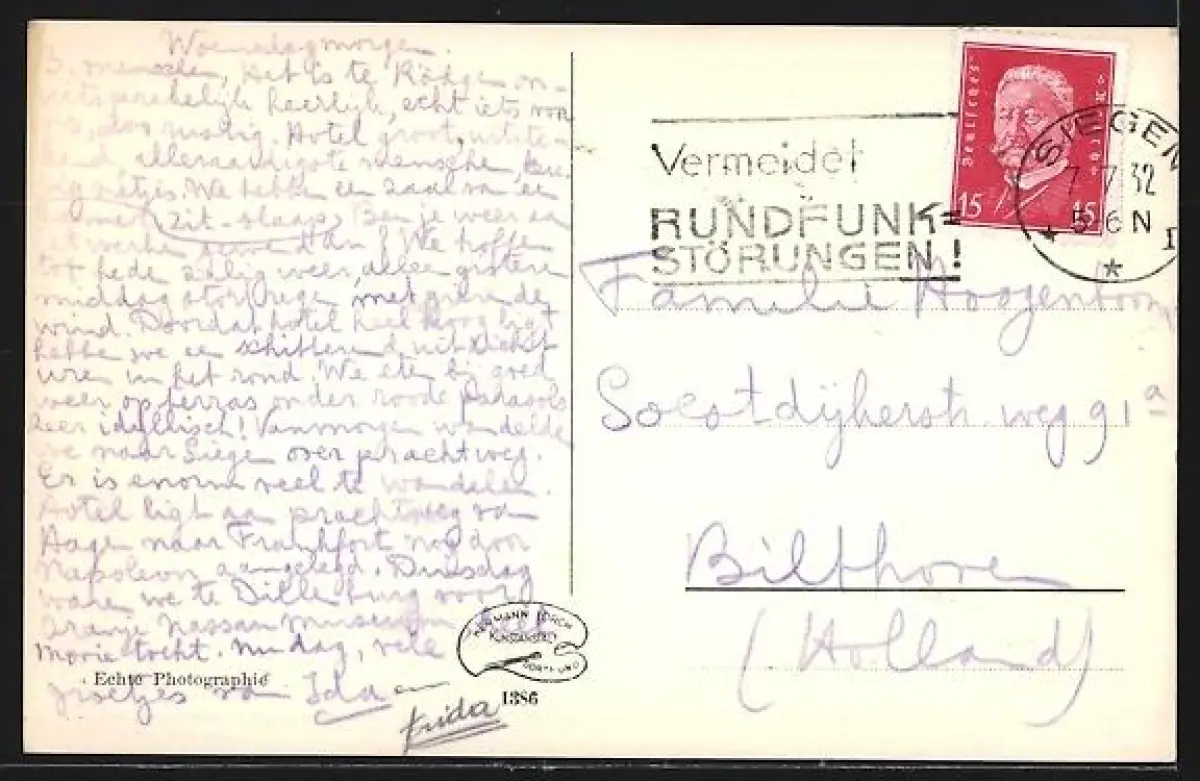 Woensdagmorgen.
menschen, Het is te Rödge on-
uitsprekelijk heerlijk, echt iets voor
rustig. Hotel groot, uitste-
kend, alleraardigste menschen,
netjes. We hebbe een zaal va een
zit-slaap. Ben je weer aa
werke gewend Han? We troffe
tot hede zalig weer, allee gistere
middag stortrege met
wind. Doordat hotel heel hoog ligt
hebbe we ee schitterend uitzicht
ure in het rond. We ete bij goed
weer op terras onder roode parasols
zeer idyllisch! Vanmorgen wandelde
we naar Siege over prachtweg.
Er is enorm veel te wandelen.
Hotel ligt aa prachtweg va
Hage naar Frankfort nog door
Napoleon aangelegd. Dinsdag
ware we te Dillenburg voor
Oranje Nassau Museum
tocht. Nu dag, vele
va Ida en
Frida
Echte Photographie
HERMANN LORCH
KUNSTANSTALT
DORTMUND
1386
Vermeidet
RUNDFUNK=
STÖRUNGEN!
Deutsches Reich
15 15
SIEGEN
7.7.32
5-6 N
Familie Hoogenboom
Soestdijkerstr. weg 91a
Bilthove
(Holland)